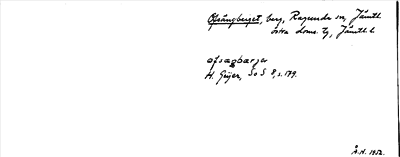 Ofsångberget, berg, Ragunda sn, Jämtl.
östra doms. tg, Jämtl. l.
ofsaŋbarjə
H. Geijer, SoS 8, s. 179.
Å.H. 1952.